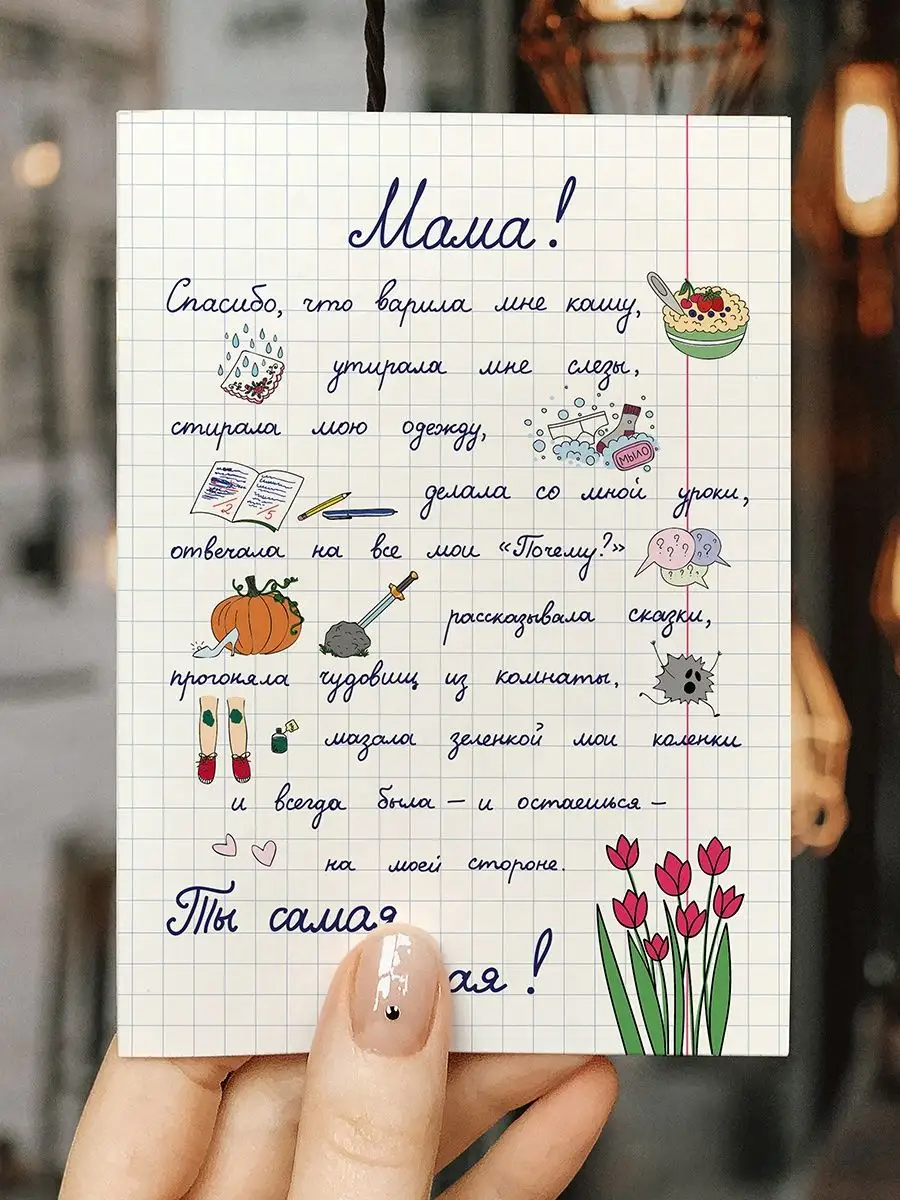 Мама!
Спасибо, что варила мне кашу,
утирала мне слезы,
стирала мою одежду,
МЫЛО
/2 /5
делала со мной уроки,
отвечала на все мои «Почему?»
? ? ? ? ? ? ? ? ?
рассказывала сказки,
прогоняла чудовищ из комнаты,
мазала зеленкой мои коленки
и всегда была – и остаешься –
на моей стороне.
Ты самая